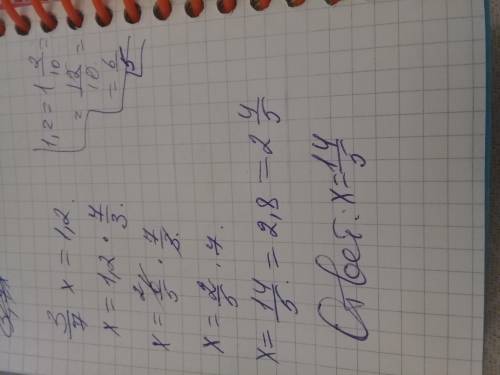 3/7 x = 1,2.
x = 1,2 · 7/3.
x = 6/5 · 7/3.
x = 2/5 · 7.
x = 14/5 = 2,8 = 2 4/5
Ответ: x = 14/5
1,2 = 1 2/10 =
= 12/10 =
= 6/5